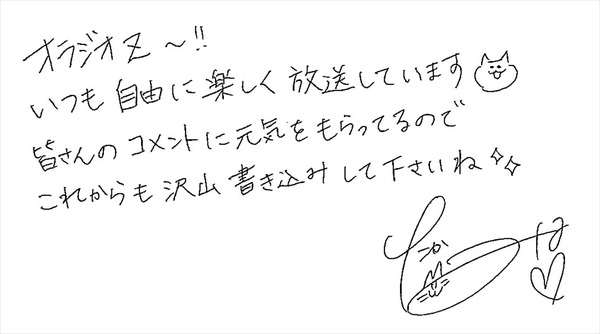 オラジオZ～!!
いつも自由に楽しく放送しています
皆さんのコメントに元気をもらってるので
これからも沢山書き込みして下さいね